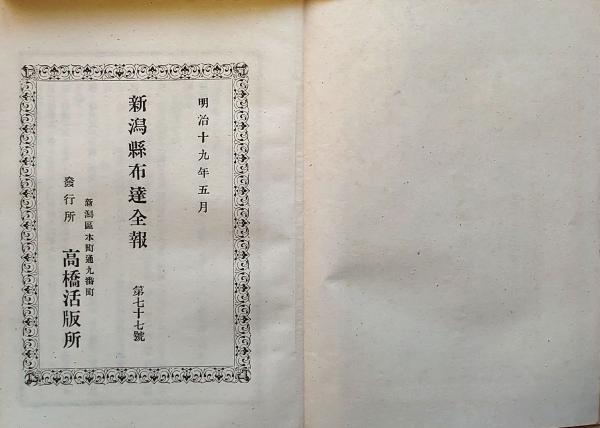 明治十九年五月
新潟縣布達全報 第七十七號
新潟區本町通九番町
發行所 高橋活版所